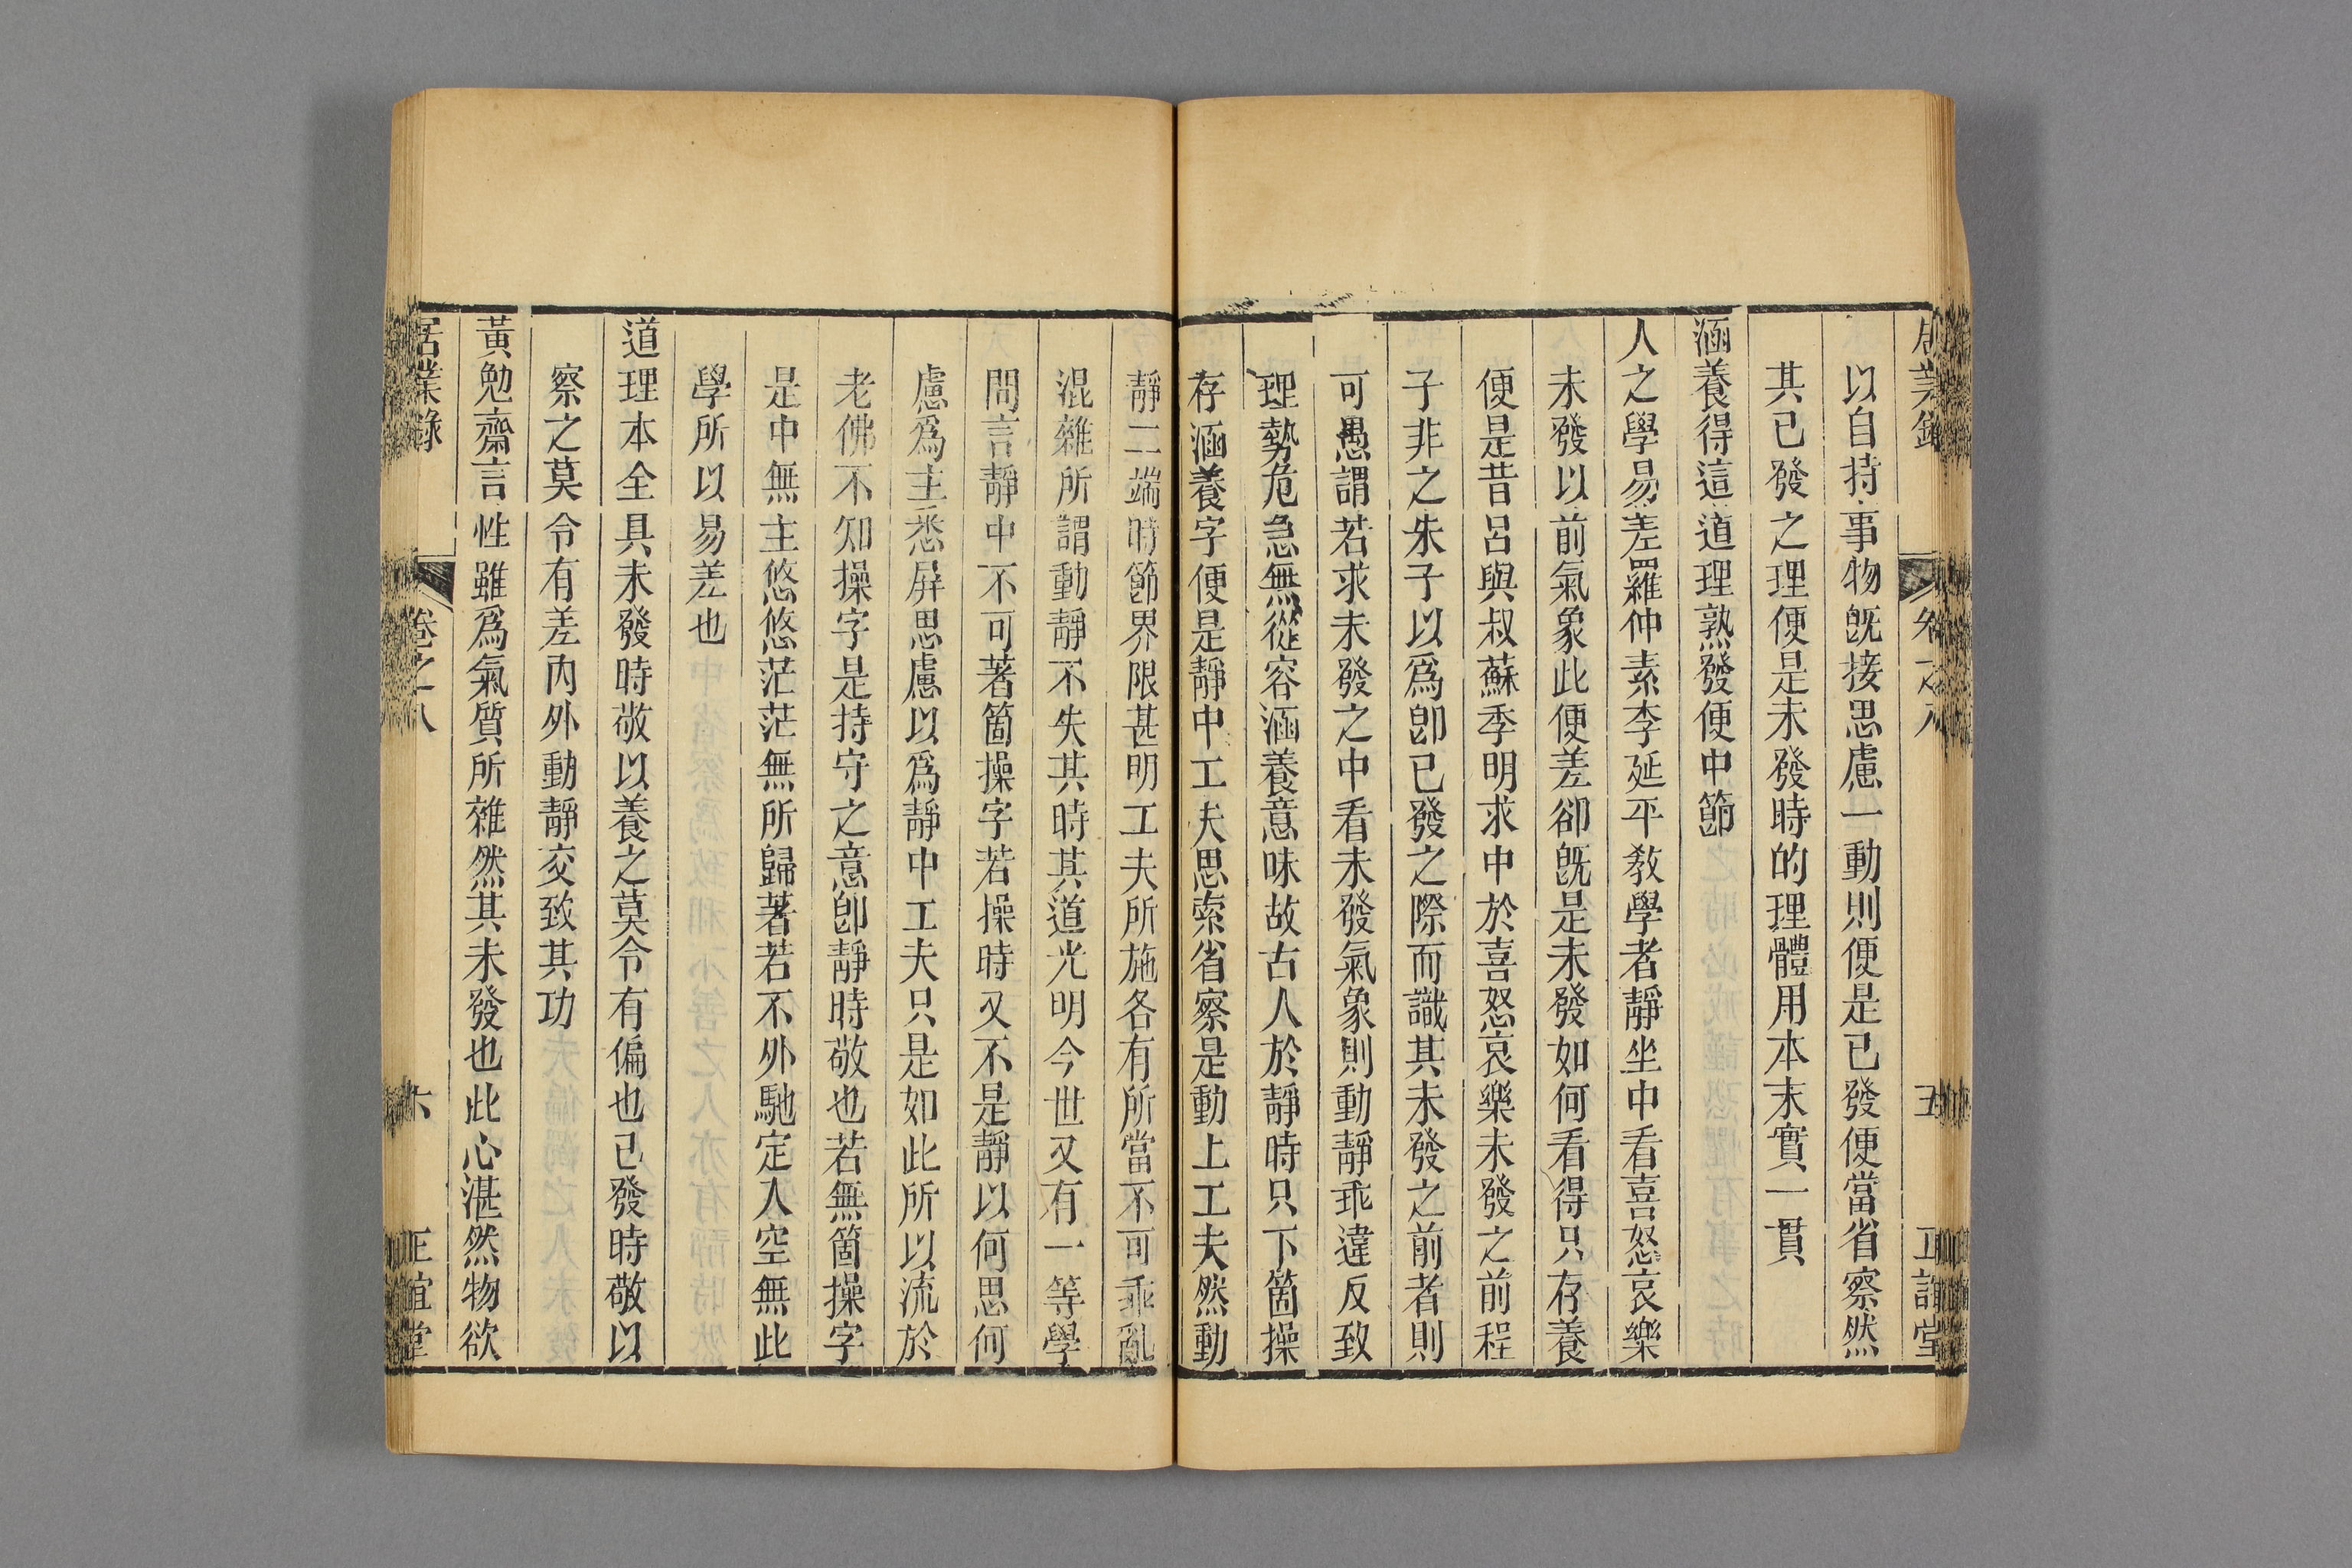 居業錄 卷之八 五 正誼堂
以自持事物旣接思慮一動則便是已發便當省察然
其已發之理便是未發時的理體用本末實一貫
涵養得這道理熟發便中節
人之學易差羅仲素李延平敎學者靜坐中看喜怒哀樂
未發以前氣象此便差卻旣是未發如何看得只存養
便是昔呂與叔蘇季明求中於喜怒哀樂未發之前程
子非之朱子以爲卽已發之際而識其未發之前者則
可愚謂若求未發之中看未發氣象則動靜乖違反致
理勢危急無從容涵養意味故古人於靜時只下箇操
存涵養字便是靜中工夫思索省察是動上工夫然動
靜二端時節界限甚明工夫所施各有所當不可乖亂
混雜所謂動靜不失其時其道光明今世又有一等學
問言靜中不可著箇操字若操時又不是靜以何思何
慮爲主悉屏思慮以爲靜中工夫只是如此所以流於
老佛不知操字是持守之意卽靜時敬也若無箇操字
是中無主悠悠茫茫無所歸著若不外馳定入空無此
學所以易差也
道理本全具未發時敬以養之莫令有偏也已發時敬以
察之莫令有差內外動靜交致其功
黃勉齋言性雖爲氣質所雜然其未發也此心湛然物欲
居業錄 卷之八 六 正誼堂